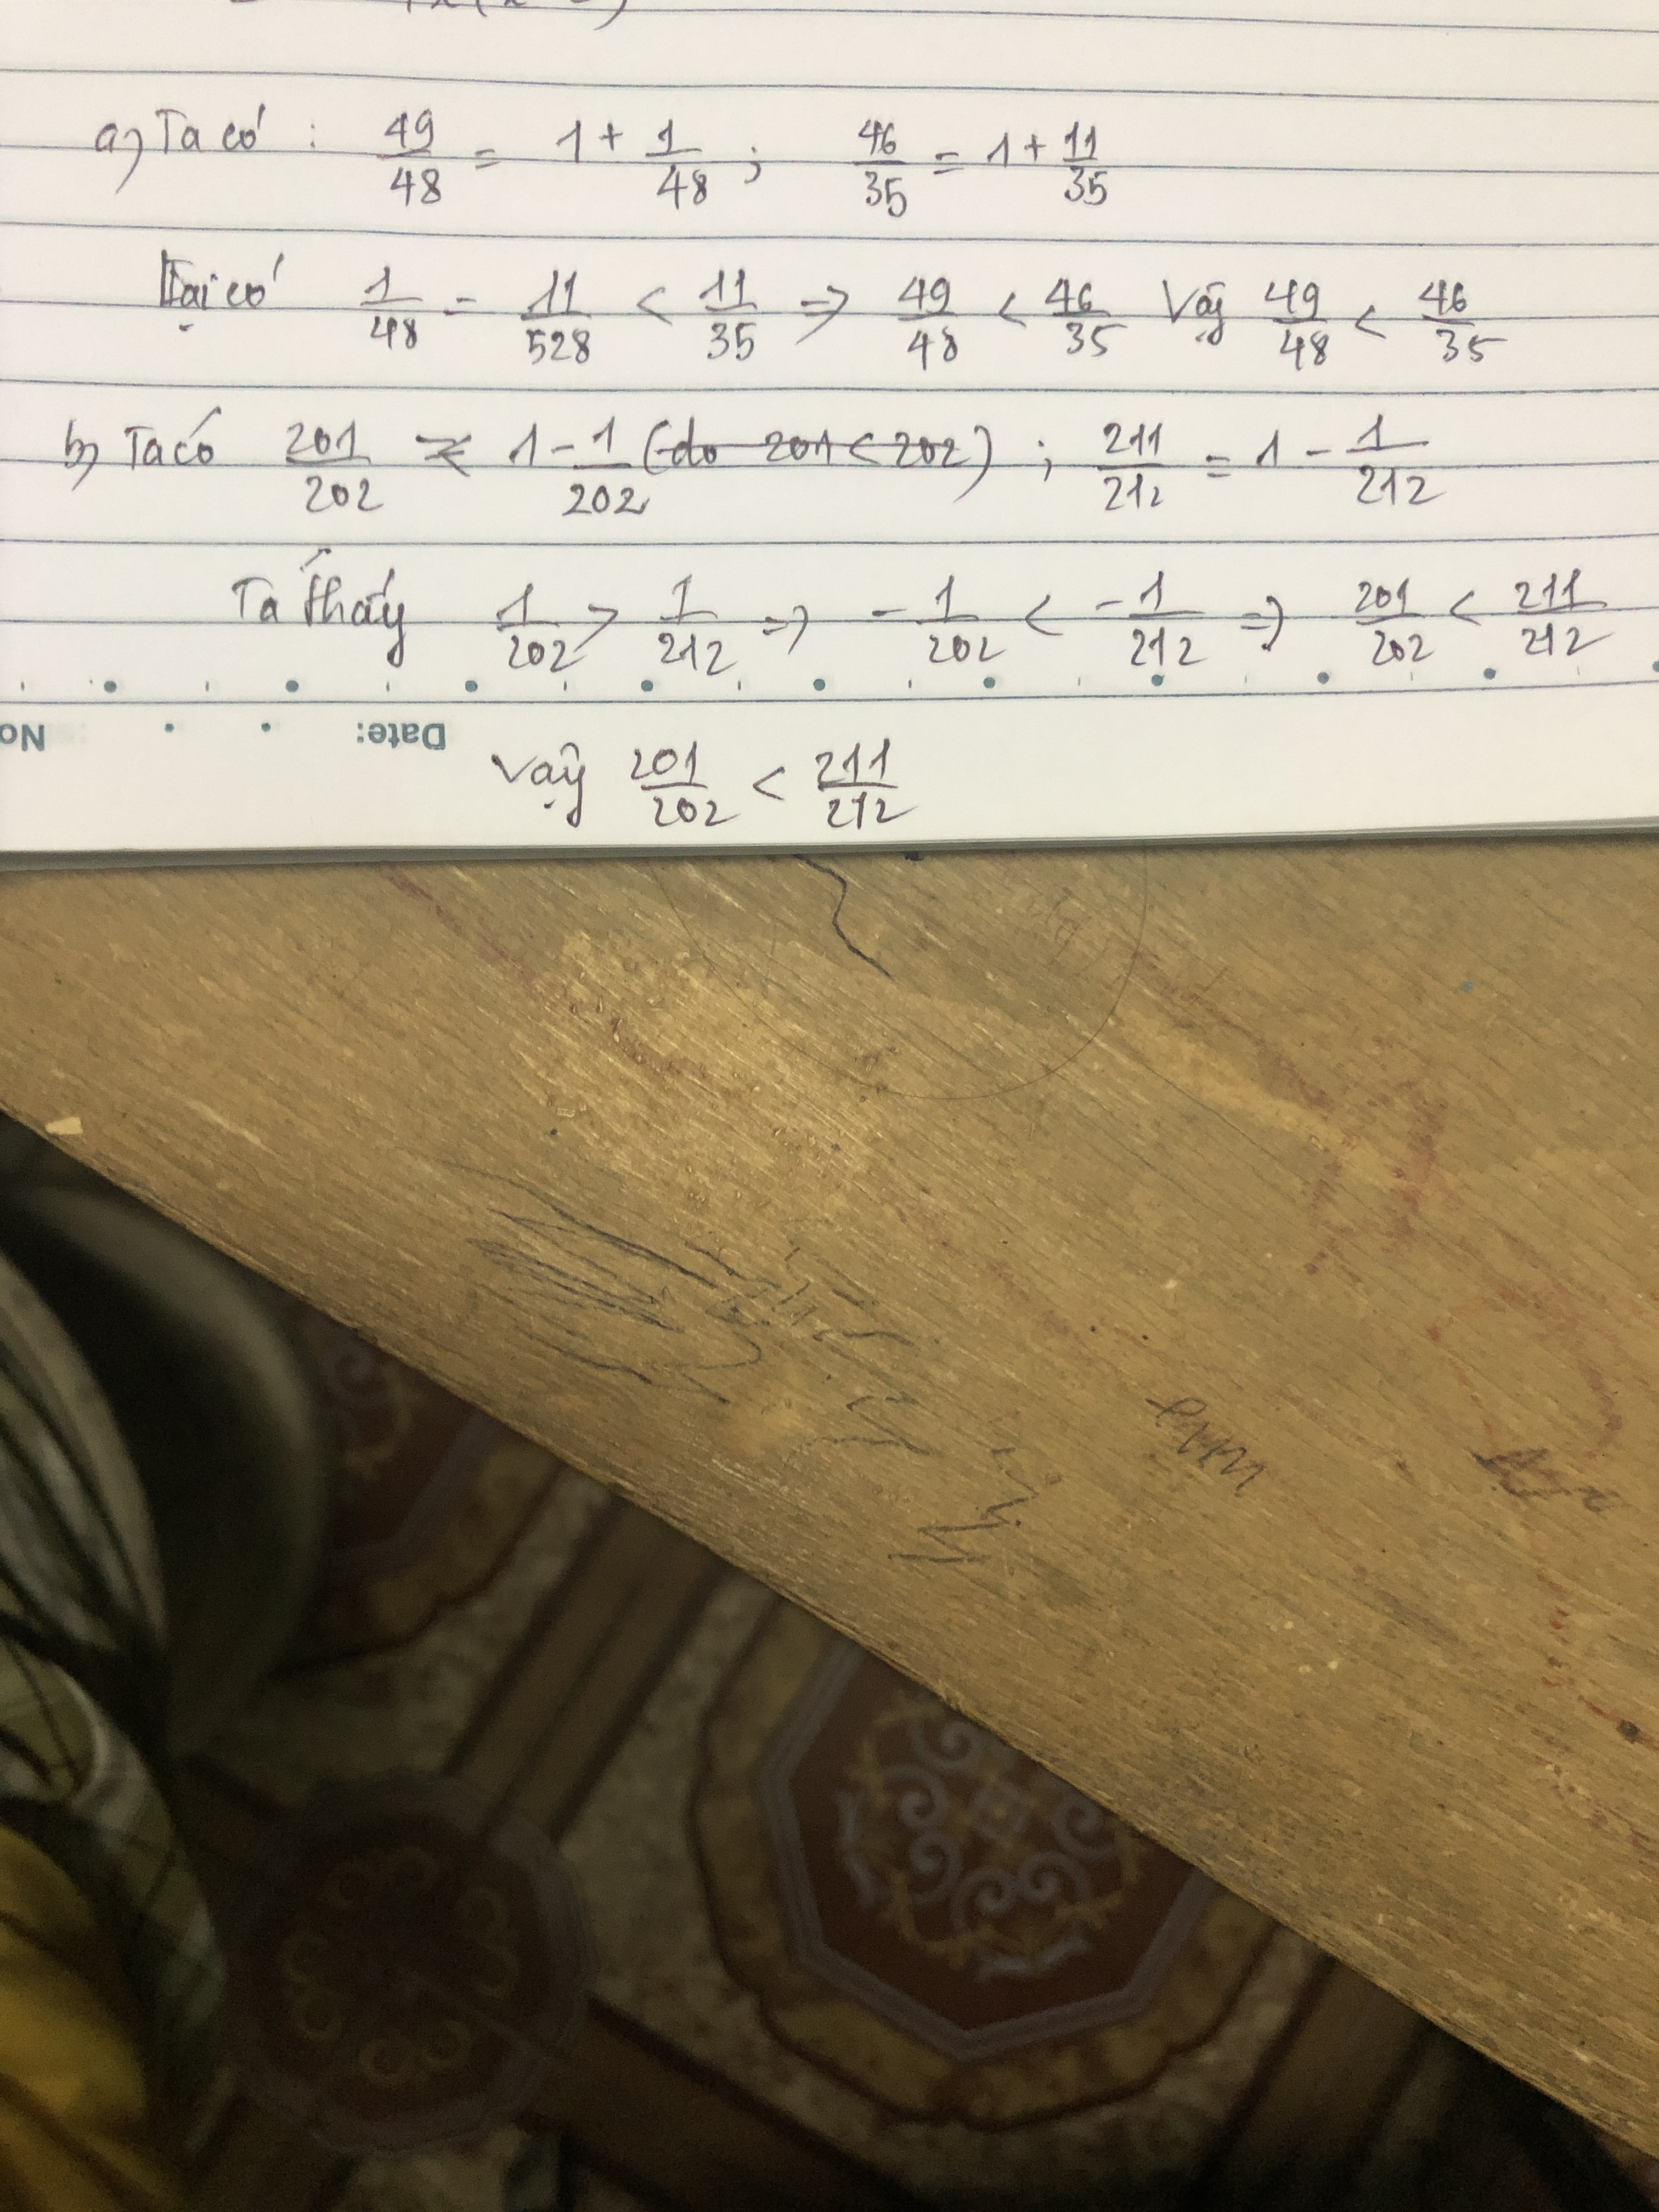 a) Ta có : 49/48 = 1 + 1/48 ; 46/35 = 1 + 11/35
Lại có 1/48 = 11/528 < 11/35 => 49/48 < 46/35 Vậy 49/48 < 46/35
b) Ta có 201/202 = 1 - 1/202 (do 201 < 202) ; 211/212 = 1 - 1/212
Ta thấy 1/202 > 1/212 => - 1/202 < - 1/212 => 201/202 < 211/212
No Date:
Vậy 201/202 < 211/212